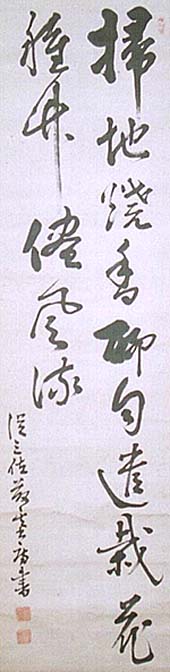 掃地焼香聊自遣栽花
種竹儘風流
従三位
書